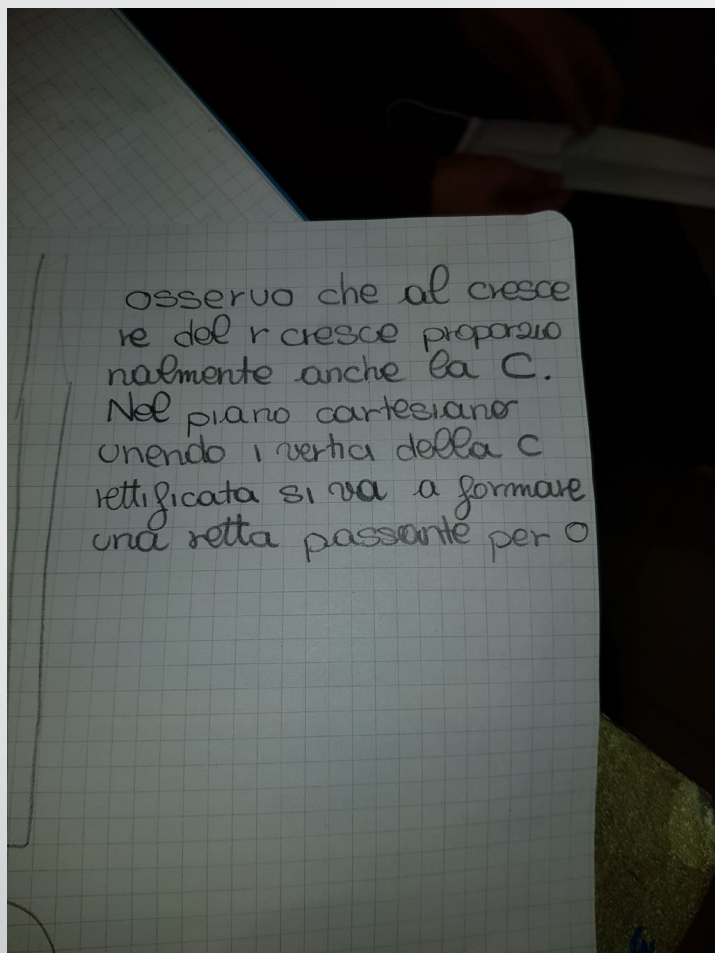 osservo che al cresce
re del r cresce proporzio
nalmente anche la C.
Nel piano cartesiano
unendo i vertici della C
rettificata si va a formare
una retta passante per O